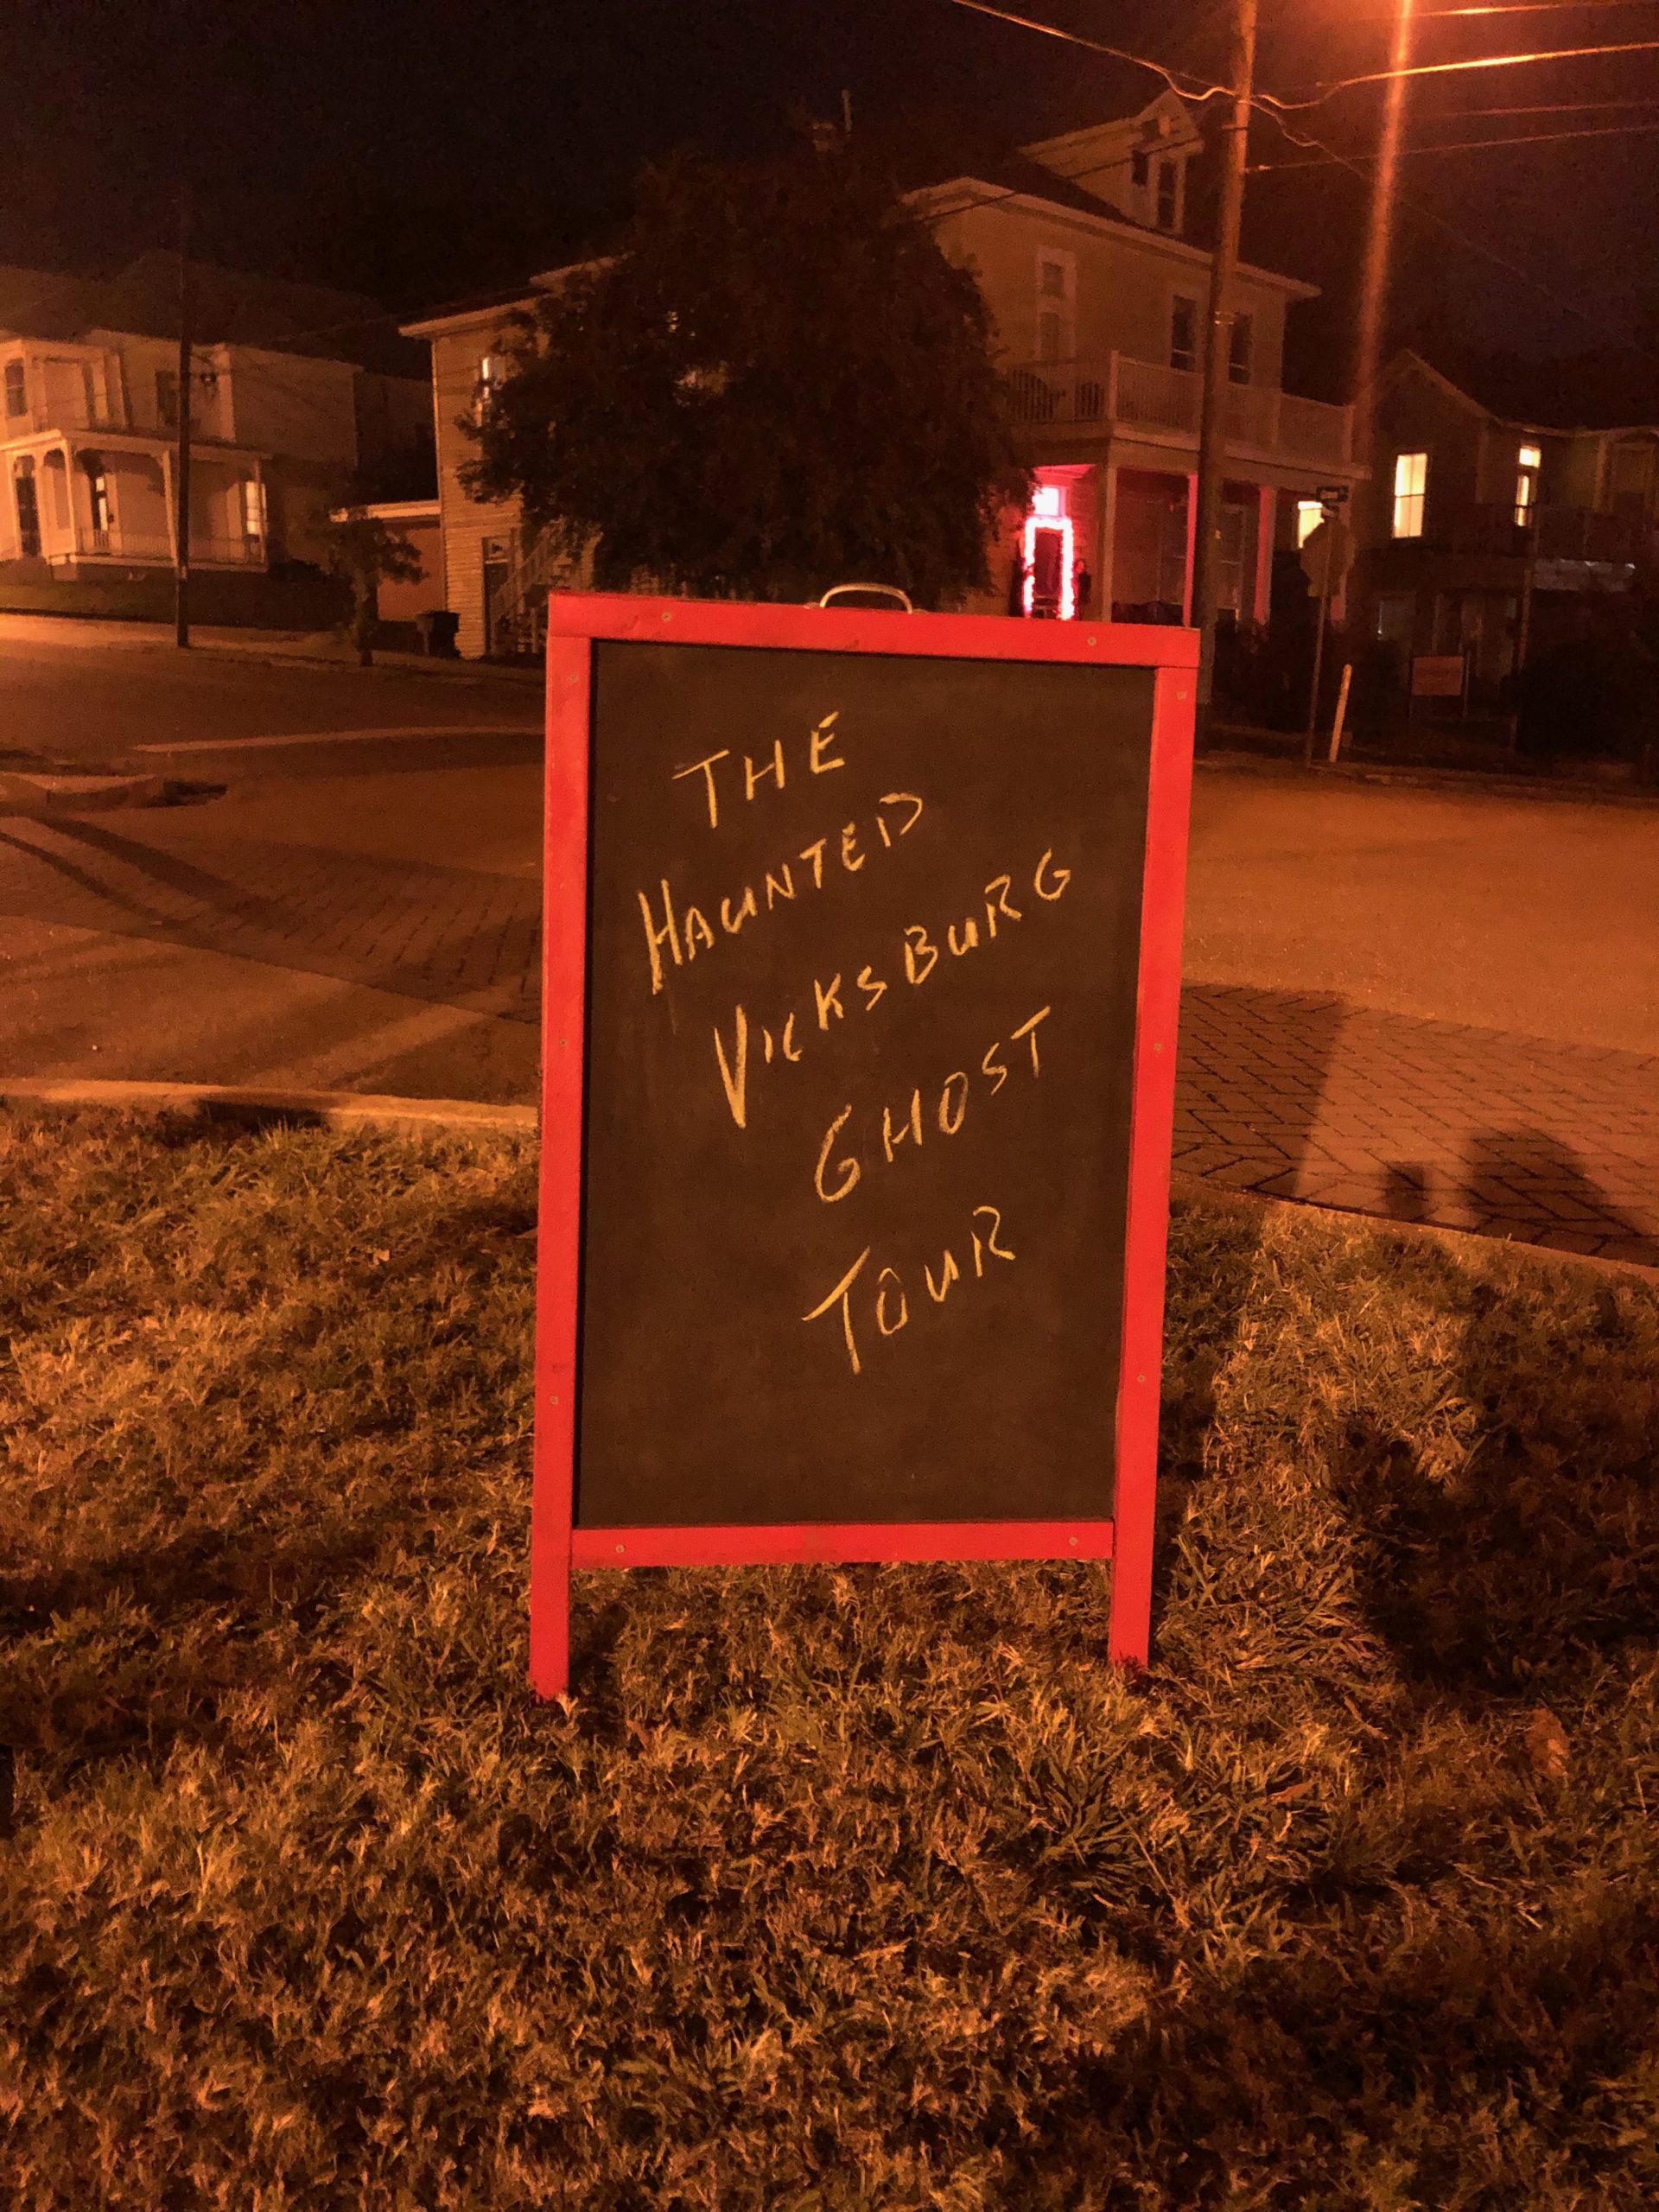 THE
HAUNTED
VICKSBURG
GHOST
TOUR